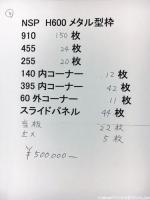 NSP H600 メタル型枠
910 150 枚
455 24 枚
255 20 枚
140 内コーナー 12 枚
395 内コーナー 42 枚
60 外コーナー 11 枚
スライドパネル 44 枚
当板 22 枚
EX 5 枚
¥500000-